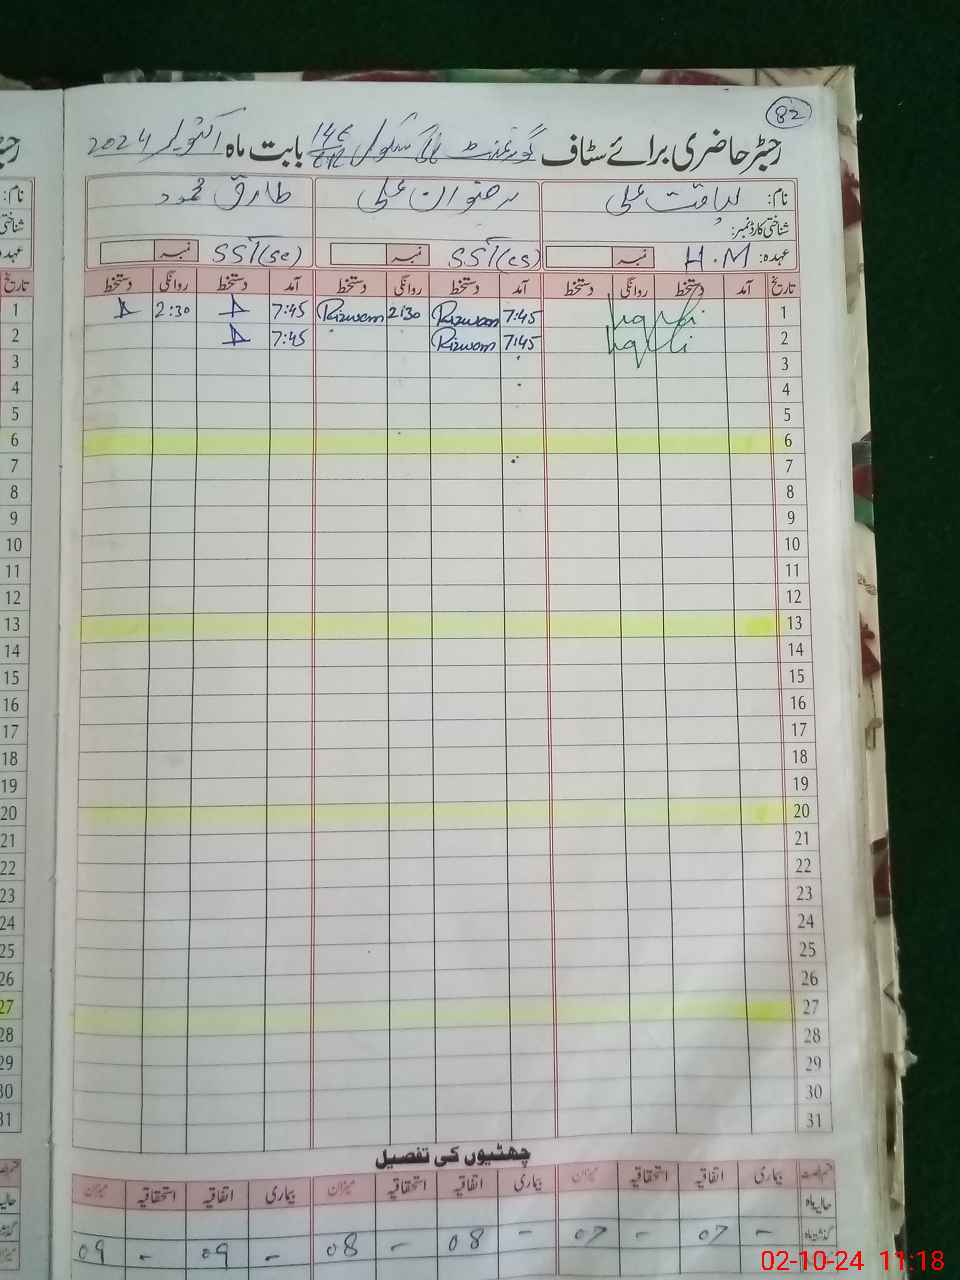 82
رجسٹر حاضری برائے سٹاف گورنمنٹ ہائی سکول بابت ماہ اکتوبر 2024
نام: لیاقت علی رضوان علی طارق محمود
شناختی کارڈ نمبر:
عہدہ: H.M نمبر SST(cs) نمبر SST(sc) نمبر
تاریخ آمد دستخط روانگی دستخط آمد دستخط روانگی دستخط آمد دستخط روانگی دستخط
1 7:45 Rizwan 2:30 Rizwan 7:45 2:30
2 7:45 Rizwan 7:45
3
4
5
6
7
8
9
10
11
12
13
14
15
16
17
18
19
20
21
22
23
24
25
26
27
28
29
30
31
چھٹیوں کی تفصیل
بیماری اتفاقیہ استحقاقیہ میزان بیماری اتفاقیہ استحقاقیہ میزان بیماری اتفاقیہ استحقاقیہ میزان
حالیہ ماہ
گذشتہ ماہ - 07 - 07 - 08 - 08 - 09 - 09
02-10-24 11:18